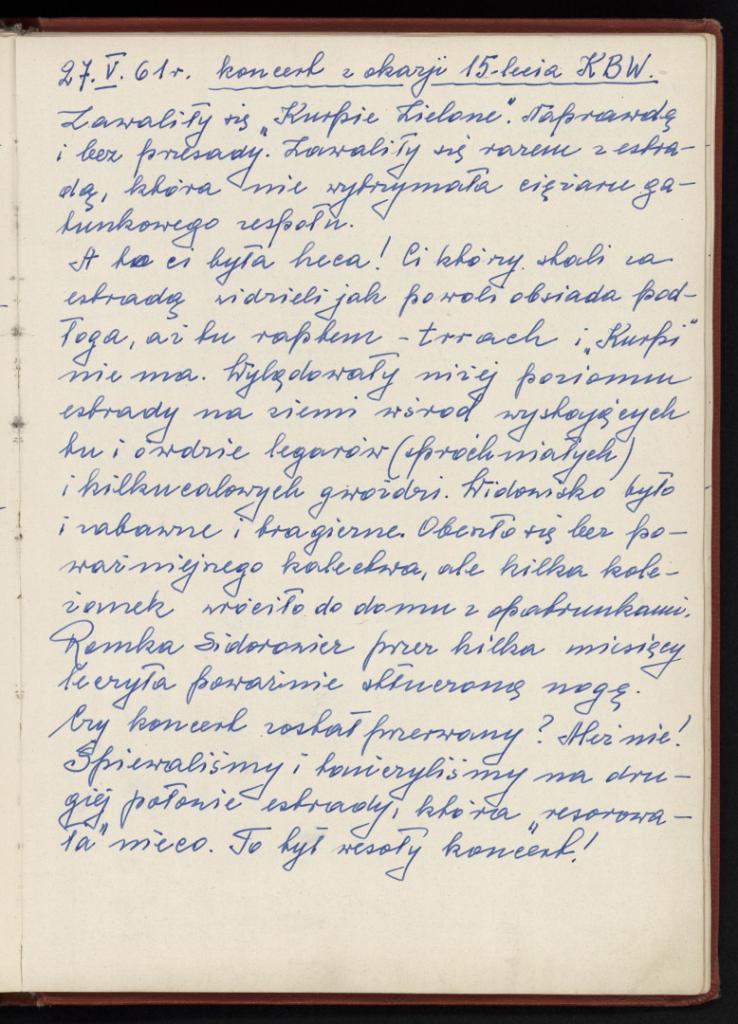 27.V.61r. koncert z okazji 15-lecia KBW.
Zawaliły się „Kurpie Zielone". Naprawdę
i bez przesady. Zawaliły się razem z estra-
dą, która nie wytrzymała ciężaru ga-
tunkowego zespołu.
A to ci była heca! Ci którzy stali za
estradą widzieli jak powoli obsiada pod-
łoga, aż tu raptem - trrach i „Kurpi"
nie ma. Wylądowały niżej poziomu
estrady na ziemi wśród wystających
tu i ówdzie legarów (spróchniałych)
i kilkucalowych gwoździ. Widowisko było
i zabawne i tragiczne. Obeszło się bez po-
ważniejszego kalectwa, ale kilka kole-
żanek wróciło do domu z opatrunkami.
Romka Sidorowicz przez kilka miesięcy
leczyła poważnie stłuczoną nogę.
Czy koncert został przerwany? Ależ nie!
Śpiewaliśmy i tańczyliśmy na dru-
giej połowie estrady, która „resorowa-
ła" nieco. To był wesoły koncert!